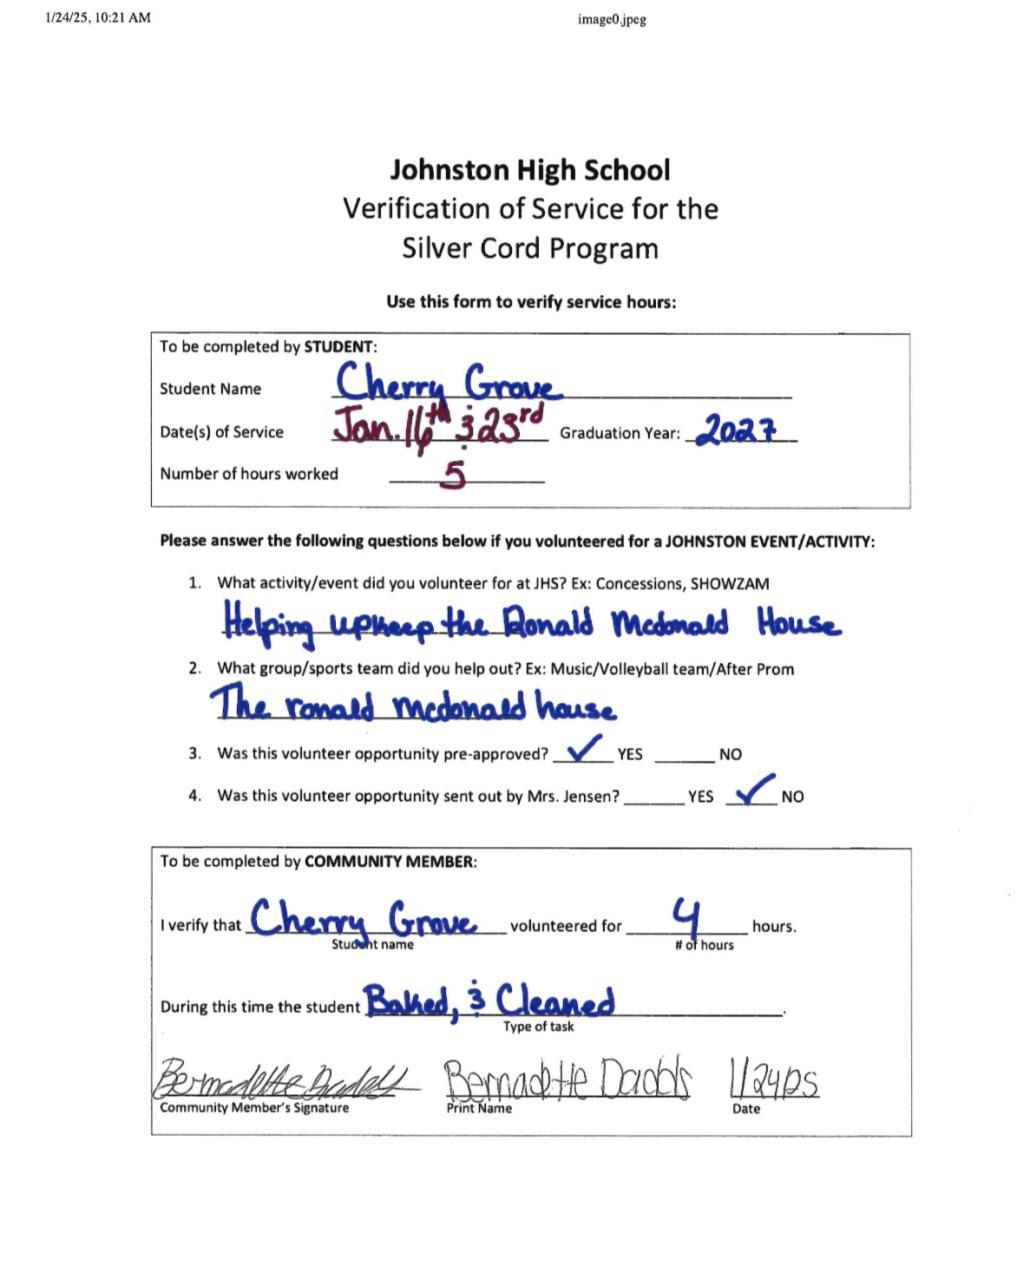 1/24/25, 10:21 AM image0.jpeg
Johnston High School
Verification of Service for the
Silver Cord Program
Use this form to verify service hours:
To be completed by STUDENT:
Student Name Cherry Grove
Date(s) of Service Jan. 16th & 23rd Graduation Year: 2027
Number of hours worked 5
Please answer the following questions below if you volunteered for a JOHNSTON EVENT/ACTIVITY:
1. What activity/event did you volunteer for at JHS? Ex: Concessions, SHOWZAM
Helping upkeep the Ronald Mcdonald House
2. What group/sports team did you help out? Ex: Music/Volleyball team/After Prom
The ronald mcdonald house
3. Was this volunteer opportunity pre-approved? ✓ YES ______ NO
4. Was this volunteer opportunity sent out by Mrs. Jensen? ______ YES ✓ NO
To be completed by COMMUNITY MEMBER:
I verify that Cherry Grove volunteered for 4 hours.
Student name # of hours
During this time the student Baked, & Cleaned.
Type of task
Bernadette Bernadette
Community Member's Signature Print Name Date